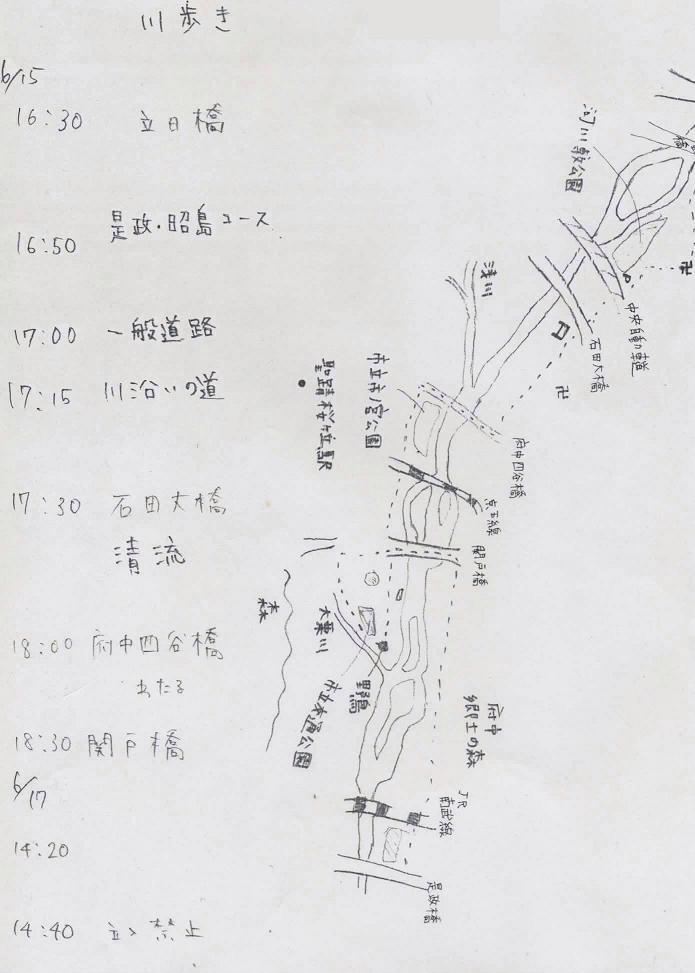 川歩き
6/15
16:30 立日橋
16:50 是政・昭島コース
17:00 一般道路
17:15 川沿いの道
17:30 石田大橋
清流
18:00 府中四谷橋
わたる
18:30 関戸橋
6/17
14:20
14:40 立入禁止
橋
河川敷公園
卍
中央自動車道
石田大橋
卍
浅川
府中四谷橋
市立一ノ宮公園
聖蹟桜ヶ丘駅
京王線
関戸橋
森
大栗川
野鳥
市立交通公園
府中
郷土の森
JR
南武線
是政橋